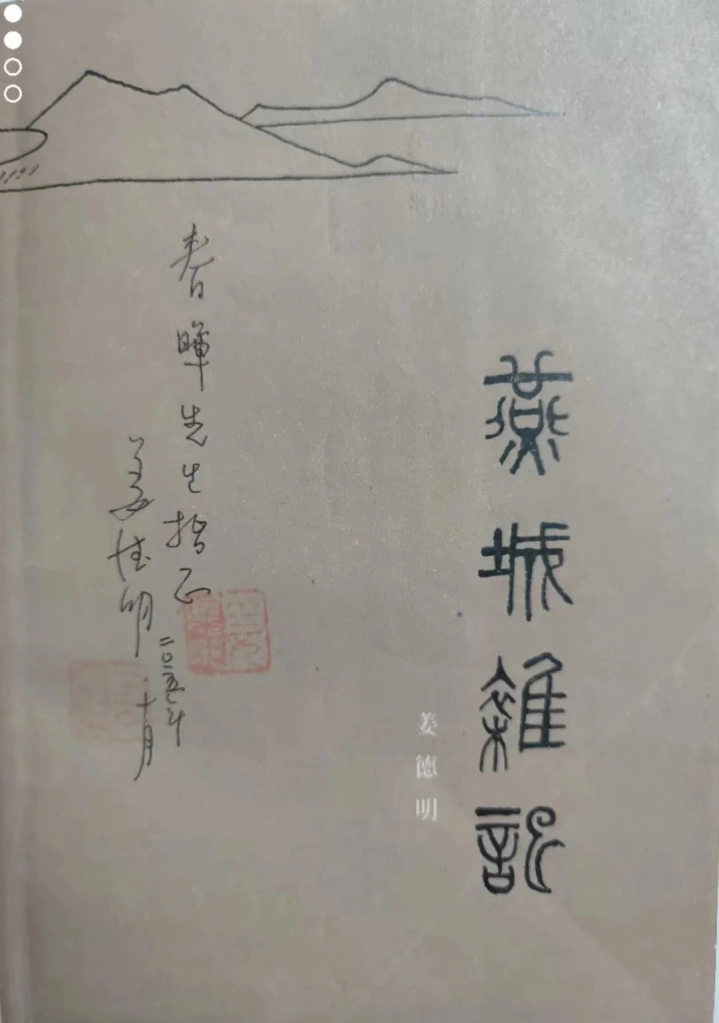 燕城雜記
姜德明
春暉先生指正
姜德明
二〇〇五年
十月